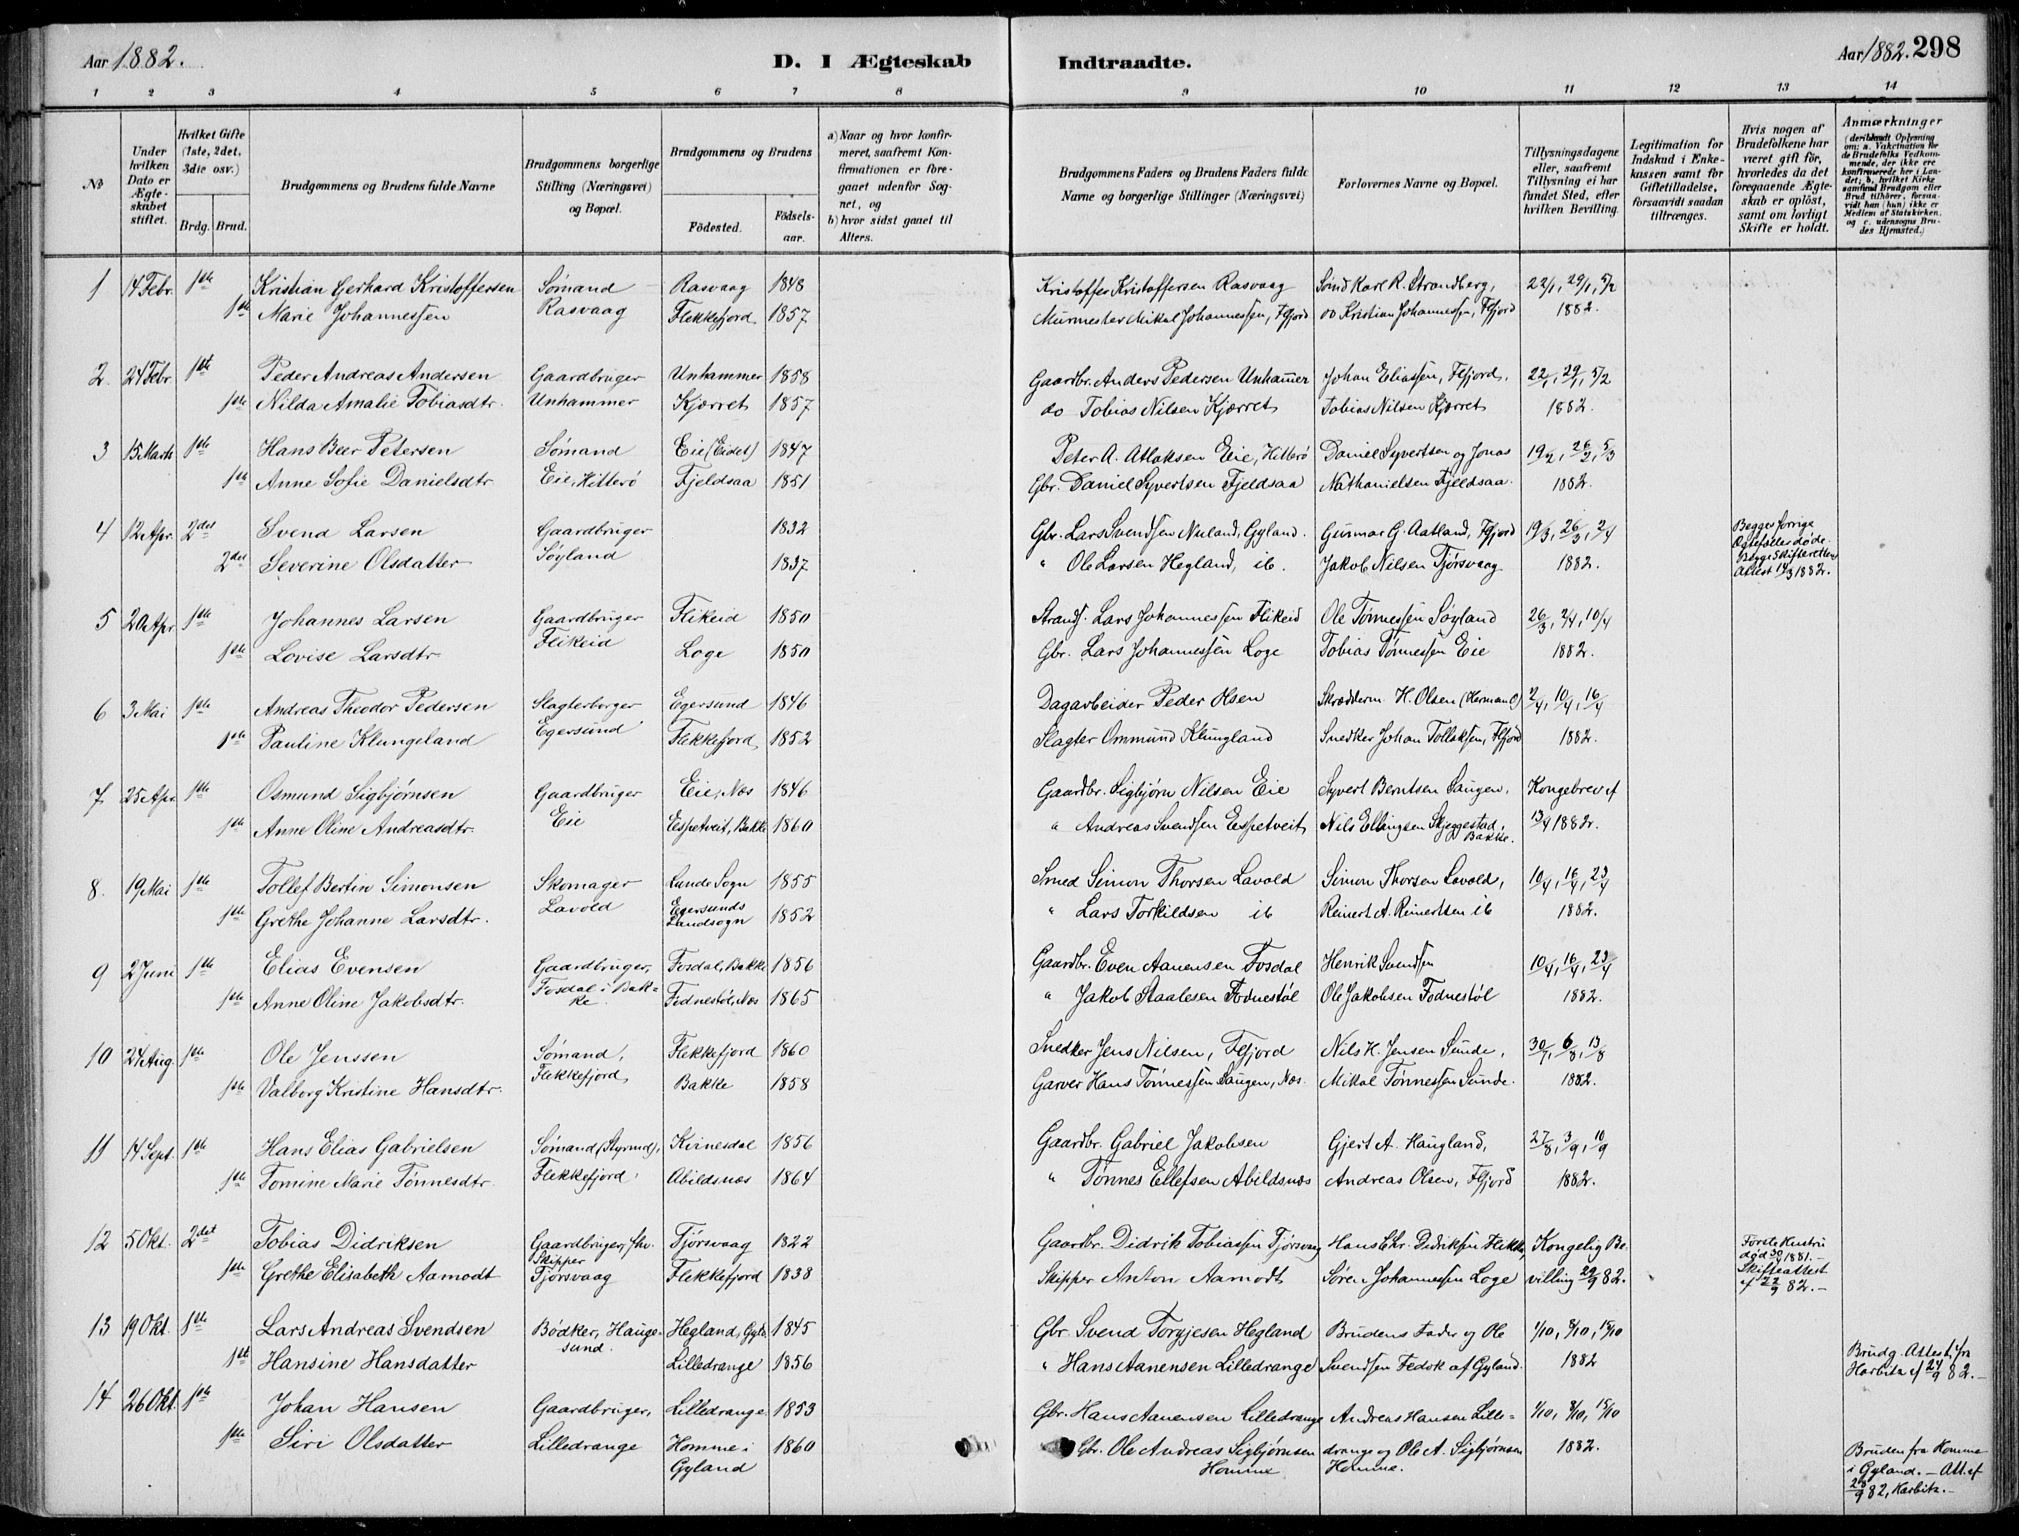 Aar 1882.
D. I Ægteskab
Indtraadte.
Aar 1882. 298
1 2 3 4 5 6 7 8 9 10 11 12 13 14
No
Under hvilken Dato er Ægteskabet stiftet.
Hvilket Gifte (1ste, 2det, 3die osv.)
Brdg. Brud.
Brudgommens og Brudens fulde Navne
Brudgommens borgerlige Stilling (Næringsvei) og Bopæl.
Brudgommens og Brudens
Födested.
Födsels-aar.
a) Naar og hvor konfirmeret, saafremt Konfirmationen er foregaaet udenfor Sognet, og
b) hvor sidst gaaet til Alters.
Brudgommens Faders og Brudens Faders fulde Navne og borgerlige Stillinger (Næringsvei)
Forlovernes Navne og Bopæl.
Tillysningsdagene eller, saafremt Tillysning ei har fundet Sted, efter hvilken Bevilling.
Legitimation for Indskud i Enkekassen samt for Giftetilladelse, forsaavidt saadan tiltrænges.
Hvis nogen af Brudefolkene har været gift för, hvorledes da det foregaaende Ægteskab er oplöst, samt om lovligt Skifte er holdt.
Anmærkninger
(deriblandt Oplysning om: a. Vakcination for de Brudefolks Vedkommende, der ikke ere konfirmerede her i Landet; b. hvilket Kirkesamfund Brudgom eller Brud tilhörer, forsaavidt han (hun) ikke er Medlem af Statskirken, og c. udensogns Brudes Hjemsted.)
1 14 Febr. 1ste Kristian Gerhard Kristoffersen Sømand Rasvaag 1848 Kristoffer Kristoffersen Rasvaag Smed Karl R. Strandberg, 22/1, 29/1, 5/2
1ste Marie Johannessen Rasvaag Flekkefjord 1857 Murmester Mikal Johannessen, Ffjord do Kristian Johannessen, Ffjord 1882.
2. 24 Febr 1ste Peder Andreas Andersen Gaardbruger Unhammer 1858 Gaardbr. Anders Pedersen Unhammer Johan Eliassen, Ffjord, 22/1, 29/1, 5/2
1ste Nilda Amalie Tobiasdtr. Unhammer Kjørret 1857 do Tobias Nilsen Kjørret Tobias Nilsen Kjørret 1882.
3 15 Marts 1ste Hans Beer Petersen Sømand Eie (Eidet) 1847 Peter A. Atlaksen Eie, Hitterø Daniel Syvertsen og Jonas 19/2, 26/2, 5/3
1ste Anne Sofie Danielsdtr Eie, Hitterø Fjeldsaa 1851 Gbr. Daniel Syvertsen Fjeldsaa Nathanielsen Fjeldsaa. 1882.
4 12 Apr. 2det Svend Larsen Gaardbruger 1832 Gbr. Lars Svendsen Nuland, Gyland. Gunmar G. Aatland, Ffjord 19/3, 26/3, 2/4 Begges forrige
2det Severine Olsdatter Søyland 1837 " Ole Larsen Hegland, ib. Jakob Nilsen Tjørsvaag 1882. Ægtefæller døde.
Begge Skifteretten
Attest 14/3 1882.
5 20 Apr. 1ste Johannes Larsen Gaardbruger Flikeid 1850 Strands. Lars Johannessen Flikeid Ole Tønnessen Søyland 26/3, 2/4, 10/4
1ste Lovise Larsdtr Flikeid Loge 1850 Gbr. Lars Johannessen Loge Tobias Tønnessen Eie 1882.
6 3 Mai 1ste Andreas Theodor Pedersen Slagterborger Egersund 1846 Dagarbeider Peder Olsen Skrædderm. H. Olsen (Herman O) 2/4, 10/4, 16/4
1ste Pauline Klungeland Egersund Flekkefjord 1852 Slagter Ommund Klungland Snedker Johan Tollaksen, Ffjord 1882.
7 25 Apr. 1ste Osmund Sigbjørnsen Gaardbruger Eie, Næs 1846 Gaardbr. Sigbjørn Nilsen Eie Syvert Berntsen Saugen, Kongebrev af
1ste Anne Oline Andreasdtr. Eie Espetveit, Bakke 1860 " Andreas Svendsen Espetveit Nils Ellingsen Skjeggestad, Bakke. 13/4 1882.
8. 19 Mai 1ste Tollef Bertin Simonsen Skomager Lunde Sogn 1855 Smed Simon Thorsen Lavold Simon Thorsen Lavold, 10/4, 16/4, 23/4
1ste Grethe Johanne Larsdtr. Lavold Egersunds Landsogn 1852 " Lars Torkildsen ib Reinert A. Reinertsen ib 1882.
9 2 Juni 1ste Elias Evensen Gaardbruger, Fosdal, Bakke 1856 Gaardbr. Even Aanensen Fosdal Henrik Svendsen 10/4, 16/4, 23/4
1ste Anne Oline Jakobsdtr. Fosdal i Bakke. Fodnestøl, Næs 1865 " Jakob Staalesen Fodnestøl Ole Jakobsen Fodnestøl 1882.
10 24 Aug. 1ste Ole Jenssen Sømand, Flekkefjord 1860 Snedker Jens Nilsen, Ffjord Nils H. Jensen Sunde, 30/7, 6/8, 13/8
1ste Valborg Kristine Hansdtr. Flekkefjord Bakke 1858 Garver Hans Tønnessen Saugen, Næs. Mikal Tønnessen Sunde. 1882.
11 14 Sept. 1ste Hans Elias Gabrielsen Sømand (Styrmd), Kvinesdal 1856 Gaardbr. Gabriel Jakobsen Gjert A. Haugland, 27/8, 3/9, 10/9
1ste Tomine Marie Tønnesdtr. Flekkefjord, Abildsnæs 1864 " Tønnes Ellefsen Abildsnæs Andreas Olsen, Ffjord 1882.
12 5 Okt. 2det Tobias Didriksen Gaardbruger, fhv. Skipper Tjørsvaag 1822 Gaardbr. Didrik Tobiassen Tjørsvaag Hans Chr. Didriksen Flekke, Kongelig Be- Første Hustru
1ste Grethe Elisabeth Aamodt Tjørsvaag Flekkefjord 1838 Skipper Anton Aamodt Søren Johannessen Loge villing 29/9 82. død 30/ 1881. -
Skifteattest
af 22/9 82. -
13 19 Okt. 1ste Lars Andreas Svendsen Bødker, Haugesund. Hegland, Gyl. 1845 Gbr. Svend Torgjesen Hegland Brudens Fader og Ole 1/10, 8/10, 15/10
1ste Hansine Hansdatter Lilledrange 1856 " Hans Aanensen Lilledrange Svendsen Fedok af Gyland. 1882 Brudg. Attest fra
af 24/9 82. -
14 26 Okt. 1ste Johan Hansen Gaardbruger, Lilledrange 1853 Gbr. Hans Aanensen Lilledrange Andreas Hansen Lille- 1/10, 8/10, 15/10
1ste Siri Olsdatter Lilledrange Homme i Gyland 1860 Gbr. Ole Andreas Sigbjørnsen Homme drange og Ole A. Sigbjørnsen Homme. 1882. Bruden fra Homme
i Gyland. - Att. af
28/9 82, Karbitz. -